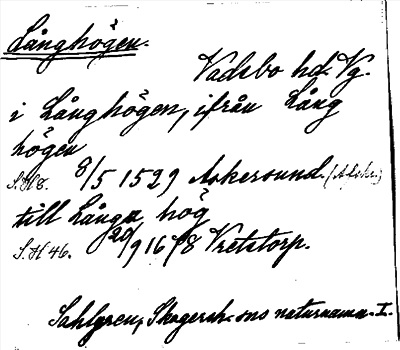 Långhögen.
Vadsbo hd. Vg.
i Långhögen, ifrån Lång
högen
S. 48. 8/5 1529 Askersund. (Afskr.)
till Långa hög
S. 46. 20/9 1678 Vretstorp.
Sahlgren, Skagersh. sns naturnamn. I.